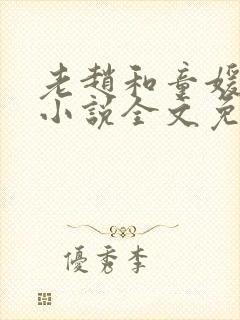 老趙和童媛
小說全文免
優秀李